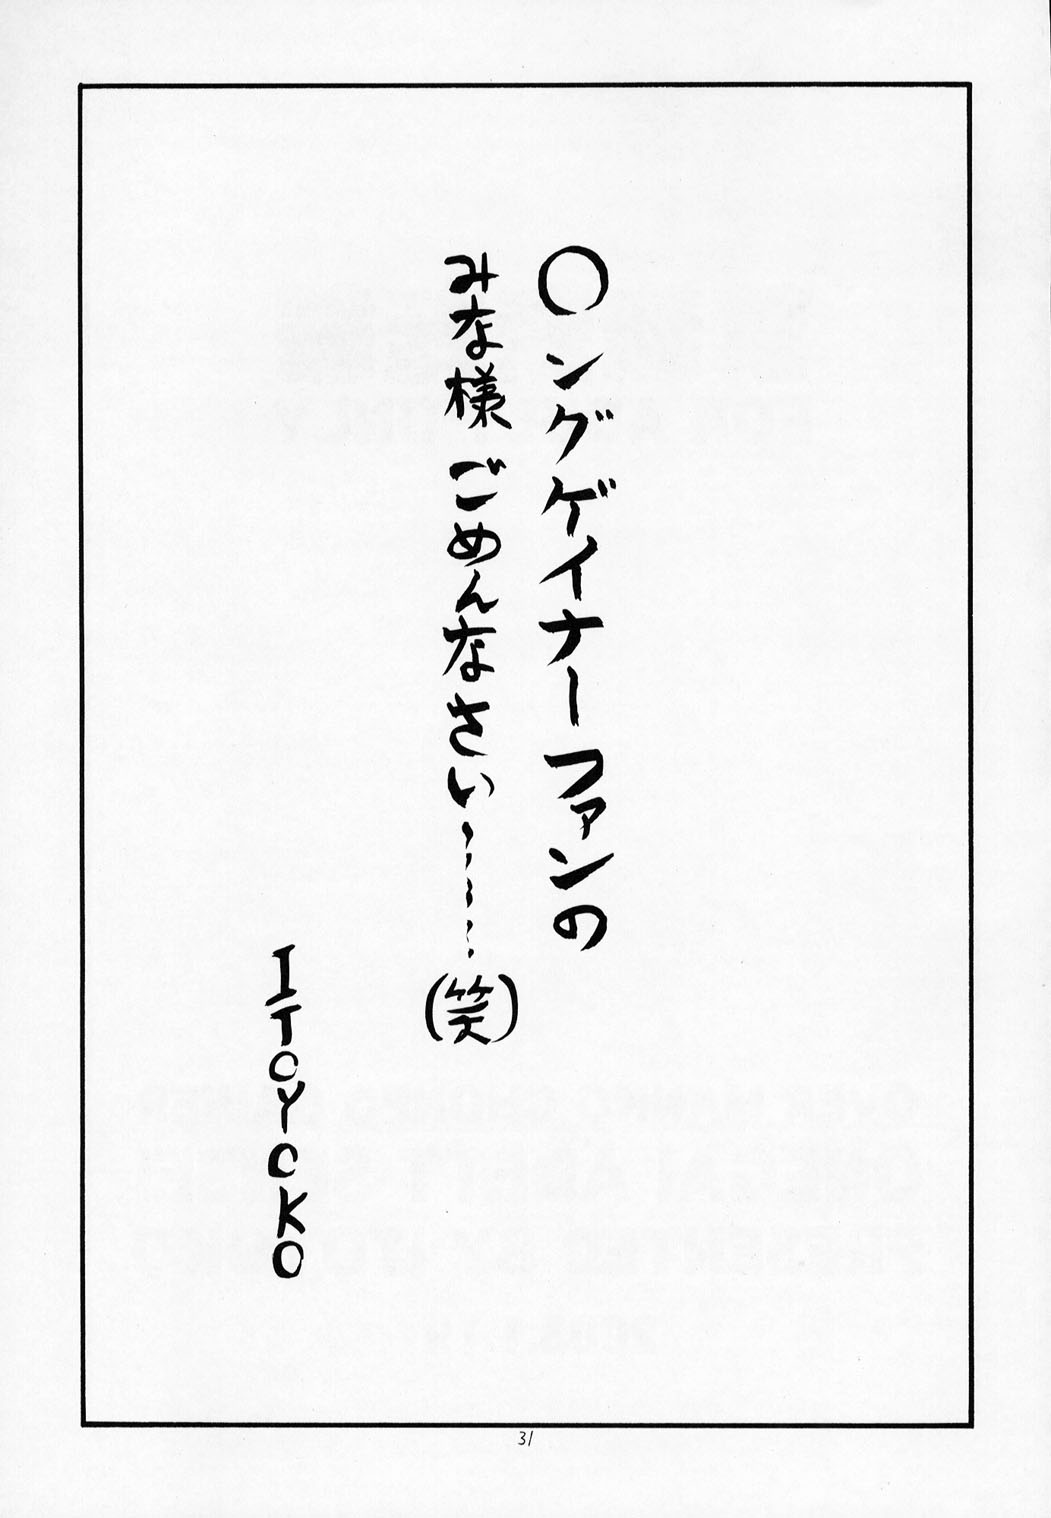 ○ングゲイナーファンの
みな様 ごめんなさい……(笑)
ITOYOKO
31